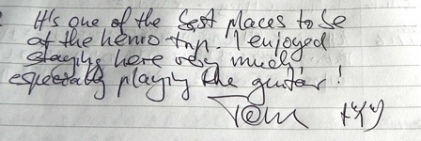 It's one of the best places to be
of the hemo trip. I enjoyed
staying here very much
especially playing the guitar!
Tom xxx